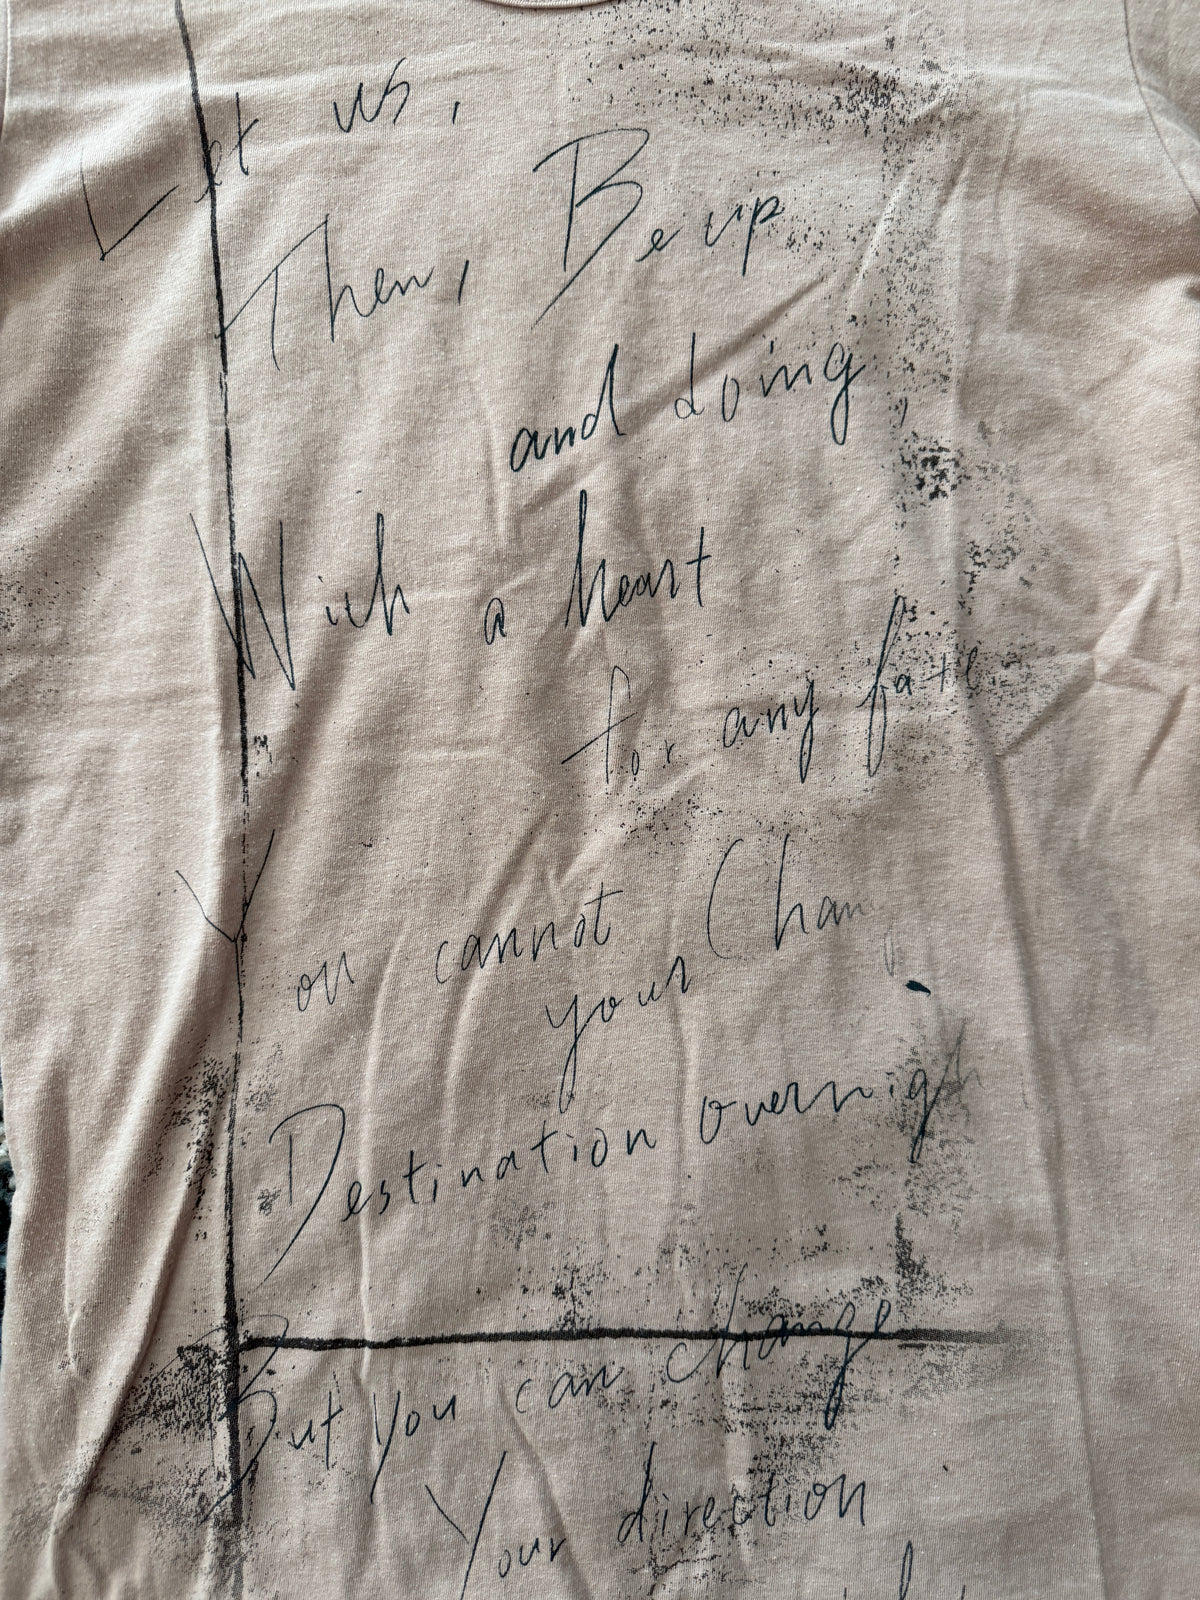 Let us,
Then, Be up
and doing,
With a heart
for any fate.
You cannot Chang
your
Destination overnigh
But you can change
Your direction